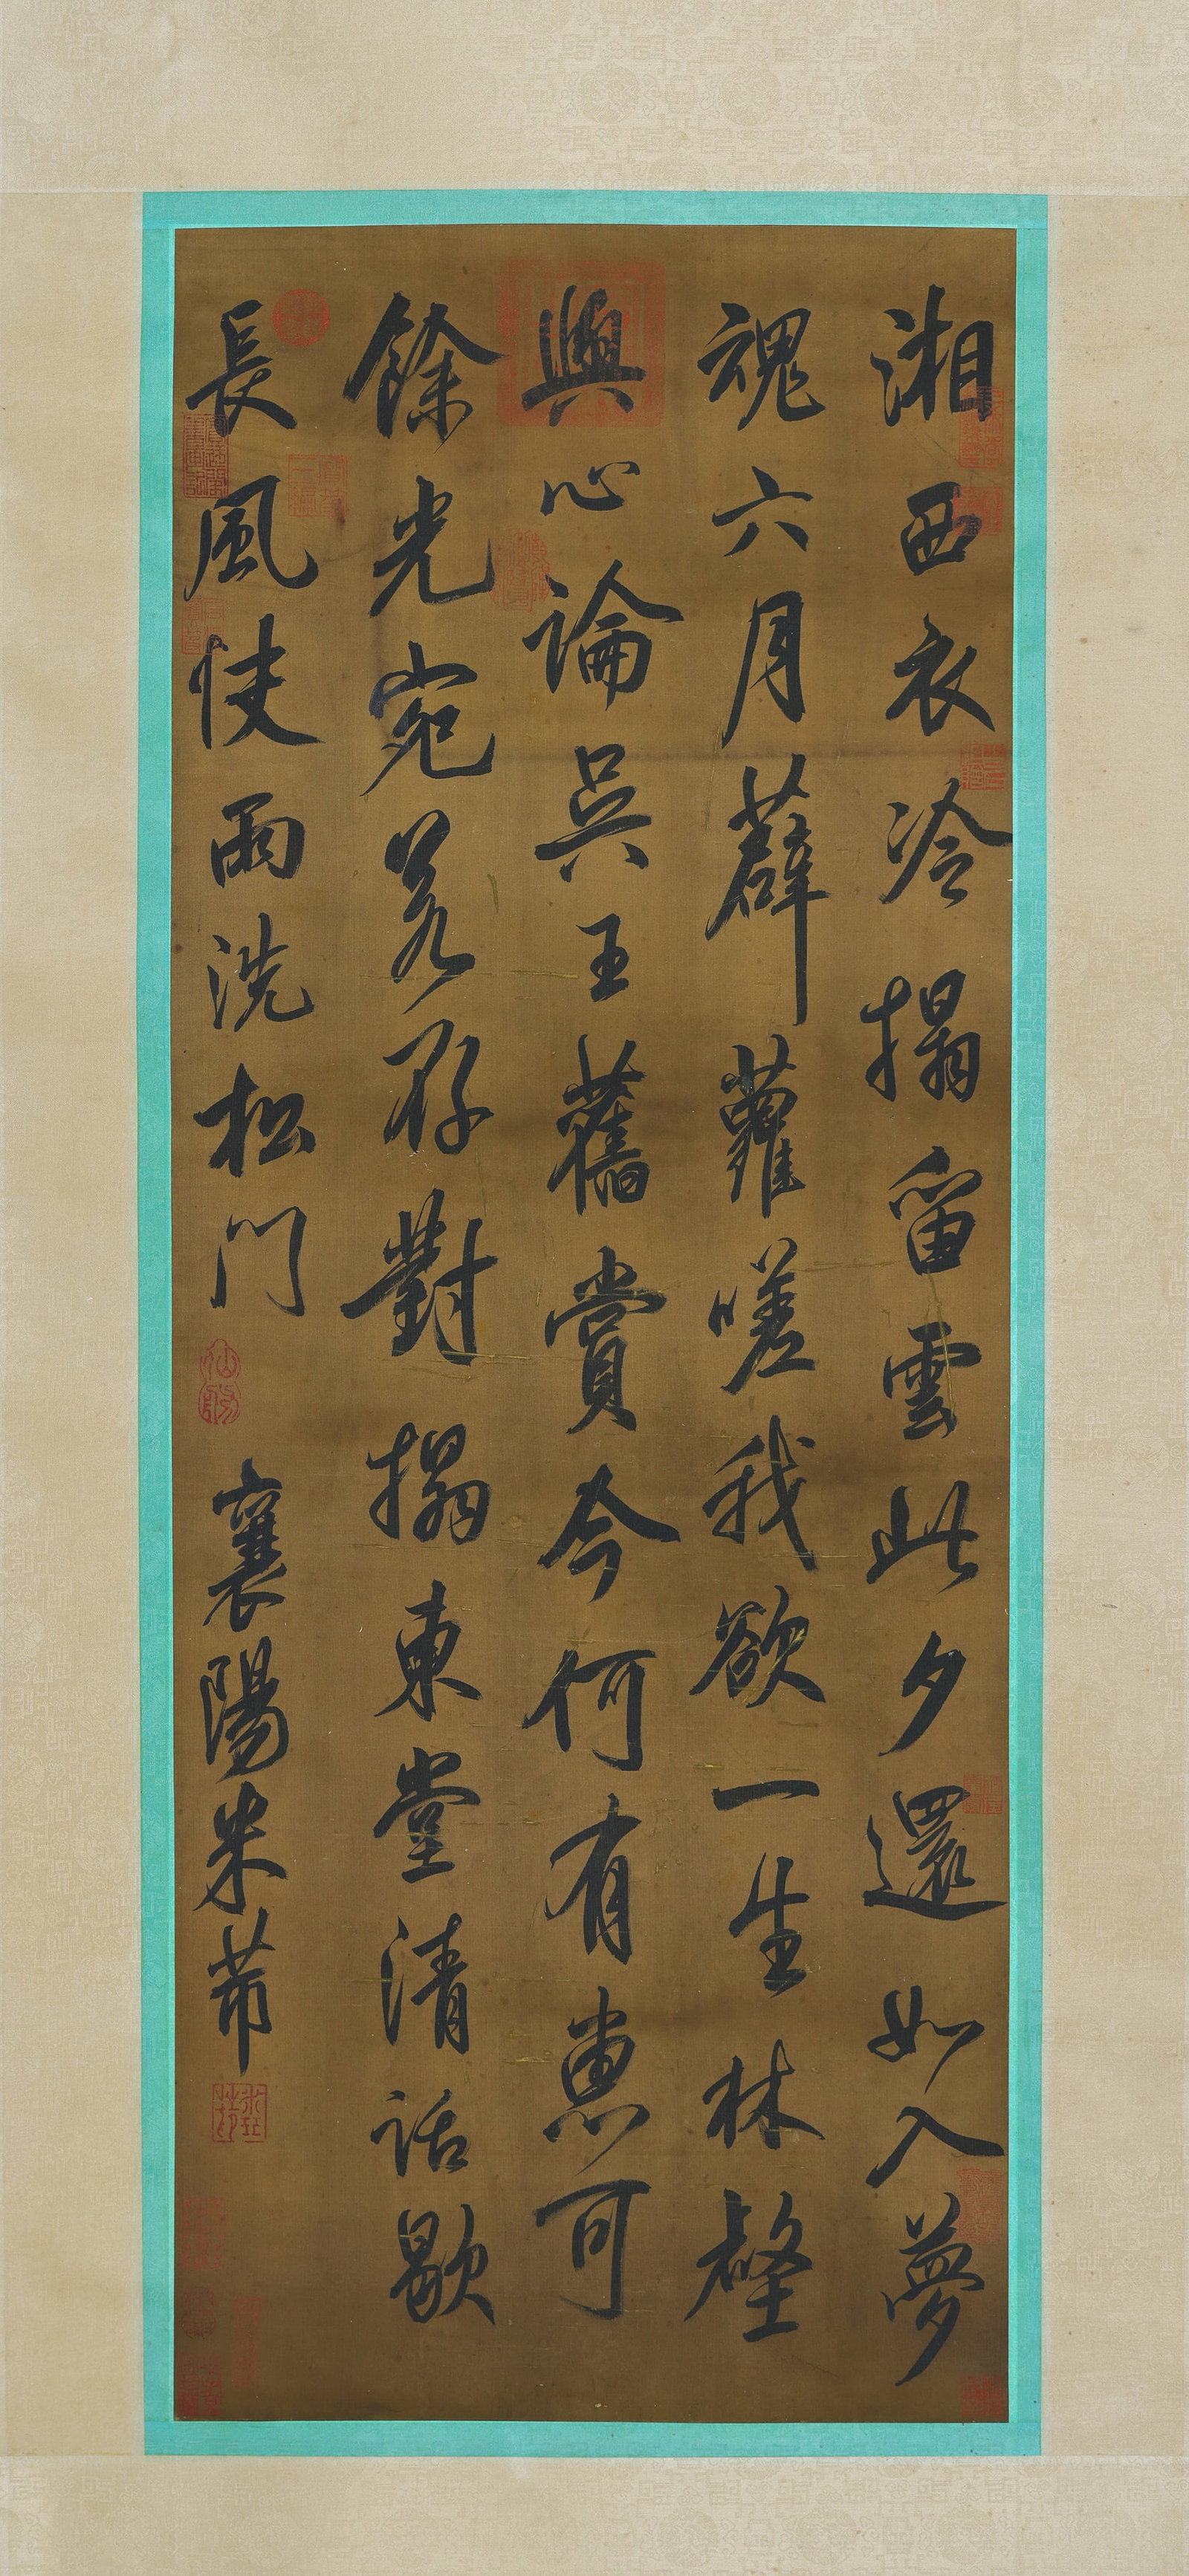 湘西衣冷搨留雲此夕還如入夢
魂六月薜蘿嗟我欲一生林壑
與心論吳王舊賞今何有惠可
餘光宛若存對搨東堂清話歇
長風快雨洗松門 襄陽米芾